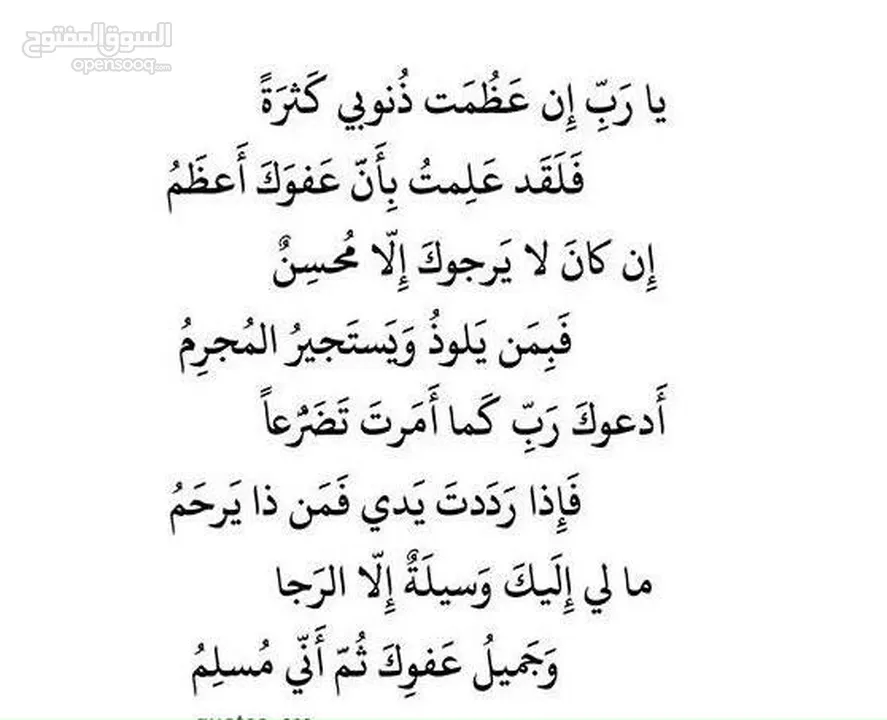 السوق المفتوح
opensooq.com
يا رَبِّ إِن عَظُمَت ذُنوبي كَثرَةً
فَلَقَد عَلِمتُ بِأَنَّ عَفوَكَ أَعظَمُ
إِن كانَ لا يَرجوكَ إِلّا مُحسِنٌ
فَبِمَن يَلوذُ وَيَستَجيرُ المُجرِمُ
أَدعوكَ رَبِّ كَما أَمَرتَ تَضَرُّعاً
فَإِذا رَدَدتَ يَدي فَمَن ذا يَرحَمُ
ما لي إِلَيكَ وَسيلَةٌ إِلّا الرَجا
وَجَميلُ عَفوِكَ ثُمّ أَنّي مُسلِمُ